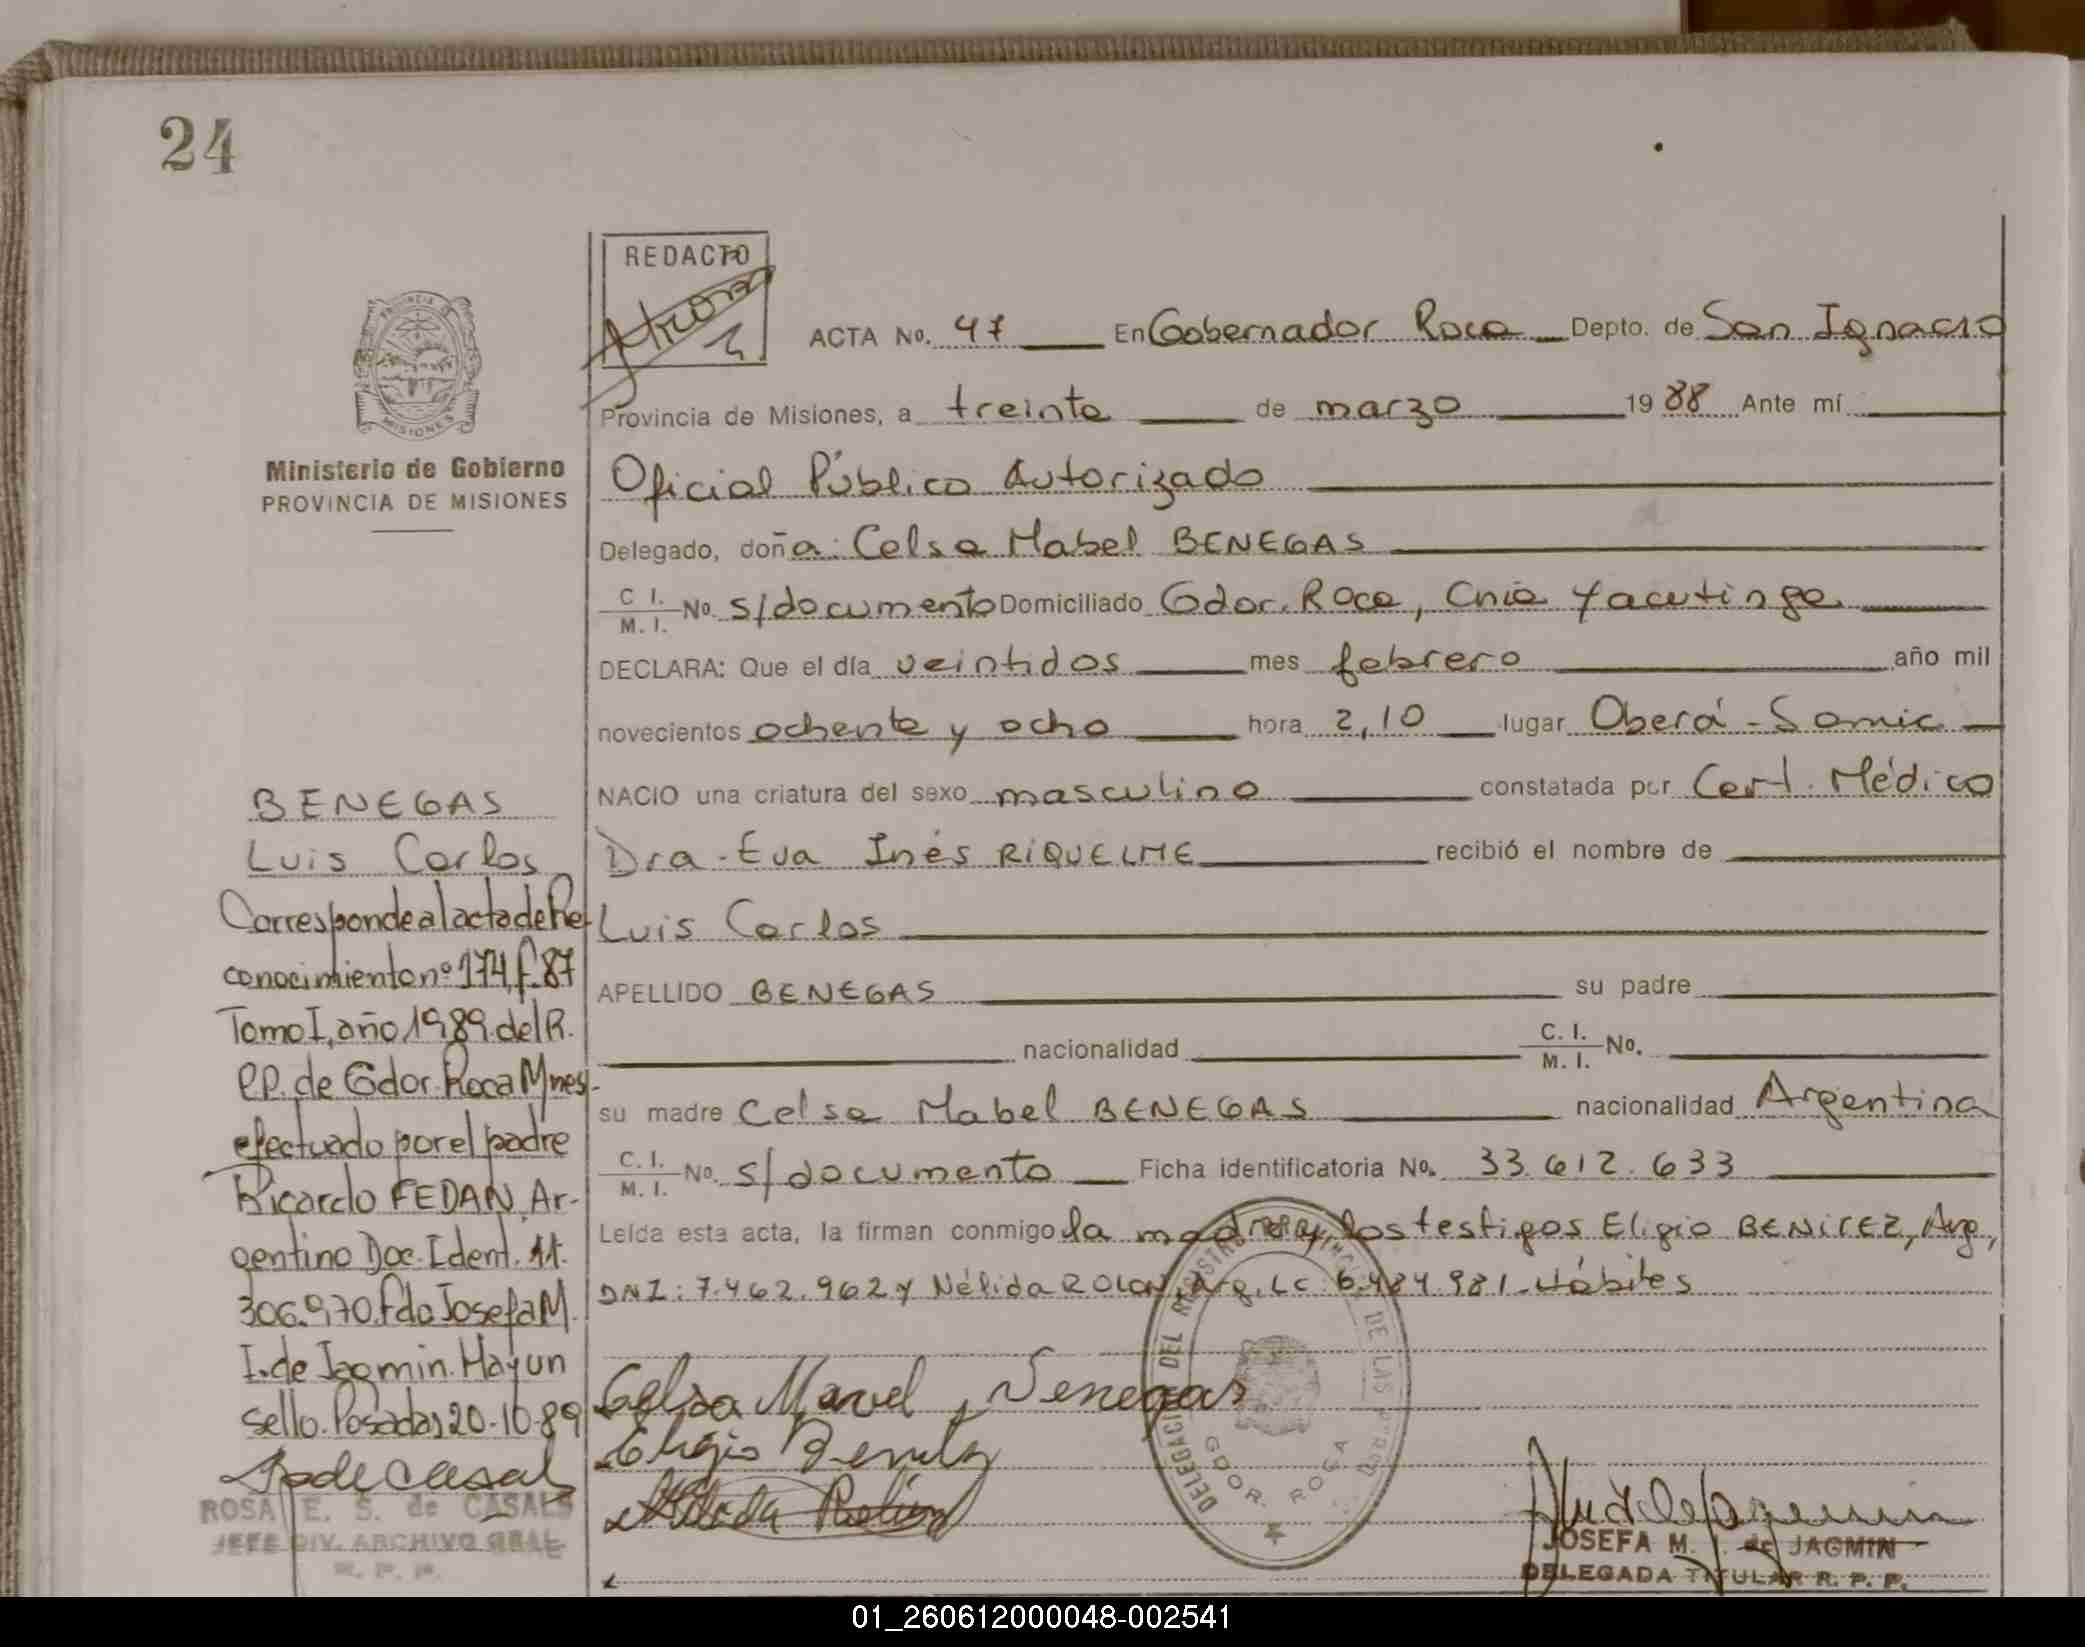 24
REDACTO
ACTA No. 47 En Gobernador Roca Depto. de San Ignacio
Provincia de Misiones, a treinta de marzo 1988 Ante mí
Oficial Público Autorizado
Delegado, doña: Celsa Mabel BENEGAS
C. I. / M. I. No. s/documento Domiciliado Gdor. Roca, Cnia Yacutinga
DECLARA: Que el día veintidos mes febrero año mil
novecientos ochenta y ocho hora 2,10 lugar Oberá - Samic
NACIO una criatura del sexo masculino constatada por Cert. Médico
Dra. Eva Inés RIQUELME recibió el nombre de
Luis Carlos
APELLIDO BENEGAS su padre
nacionalidad C. I. / M. I. No.
su madre Celsa Mabel BENEGAS nacionalidad Argentina
C. I. / M. I. No. s/documento Ficha identificatoria No. 33.612.633
Leída esta acta, la firman conmigo la madre y los testigos Eligio BENITEZ, Arg,
DNI: 7.462.962 y Nélida ROLON, Arg. LC 6.484.981 - Hábiles
Celsa Mavel Venegas
Eligio Benitz
DELEGACION DEL REGISTRO PROVINCIAL DE LAS PERSO
GDOR. ROCA
JOSEFA M. I. de JAGMIN
DELEGADA TITULAR R. P. P.
PROVINCIA DE
MISIONES
Ministerio de Gobierno
PROVINCIA DE MISIONES
BENEGAS
Luis Carlos
Corresponde al acta de Re
conocimiento nº 174, f. 87
Tomo I, año 1989 del R.
P.P. de Gdor. Roca Mnes.
efectuado por el padre
Ricardo FEDAN, Ar-
gentino Doc. Ident. 11.
306.970. Fdo Josefa M.
I. de Jagmin. Hay un
sello. Posadas 20-10-89
ROSA E. S. de CASALS
JEFE DIV. ARCHIVO GRAL
R. P. P.
01_260612000048-002541